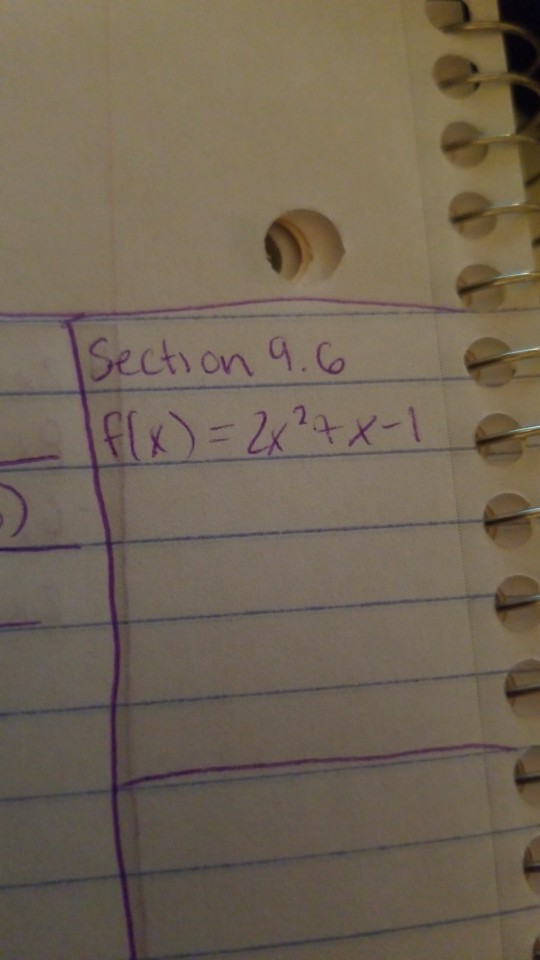 Section 9.6
f(x) = 2x²+x-1
)